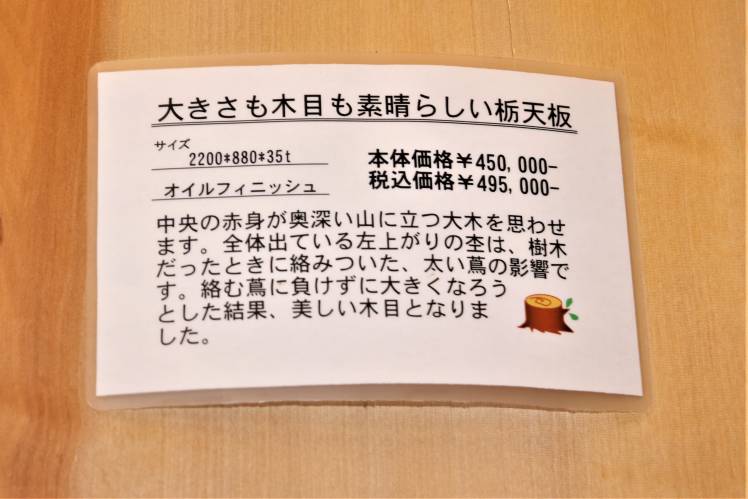 大きさも木目も素晴らしい栃天板
サイズ
2200*880*35t
本体価格￥450,000-
オイルフィニッシュ
税込価格￥495,000-
中央の赤身が奥深い山に立つ大木を思わせ
ます。全体出ている左上がりの杢は、樹木
だったときに絡みついた、太い蔦の影響で
す。絡む蔦に負けずに大きくなろう
とした結果、美しい木目となりま
した。